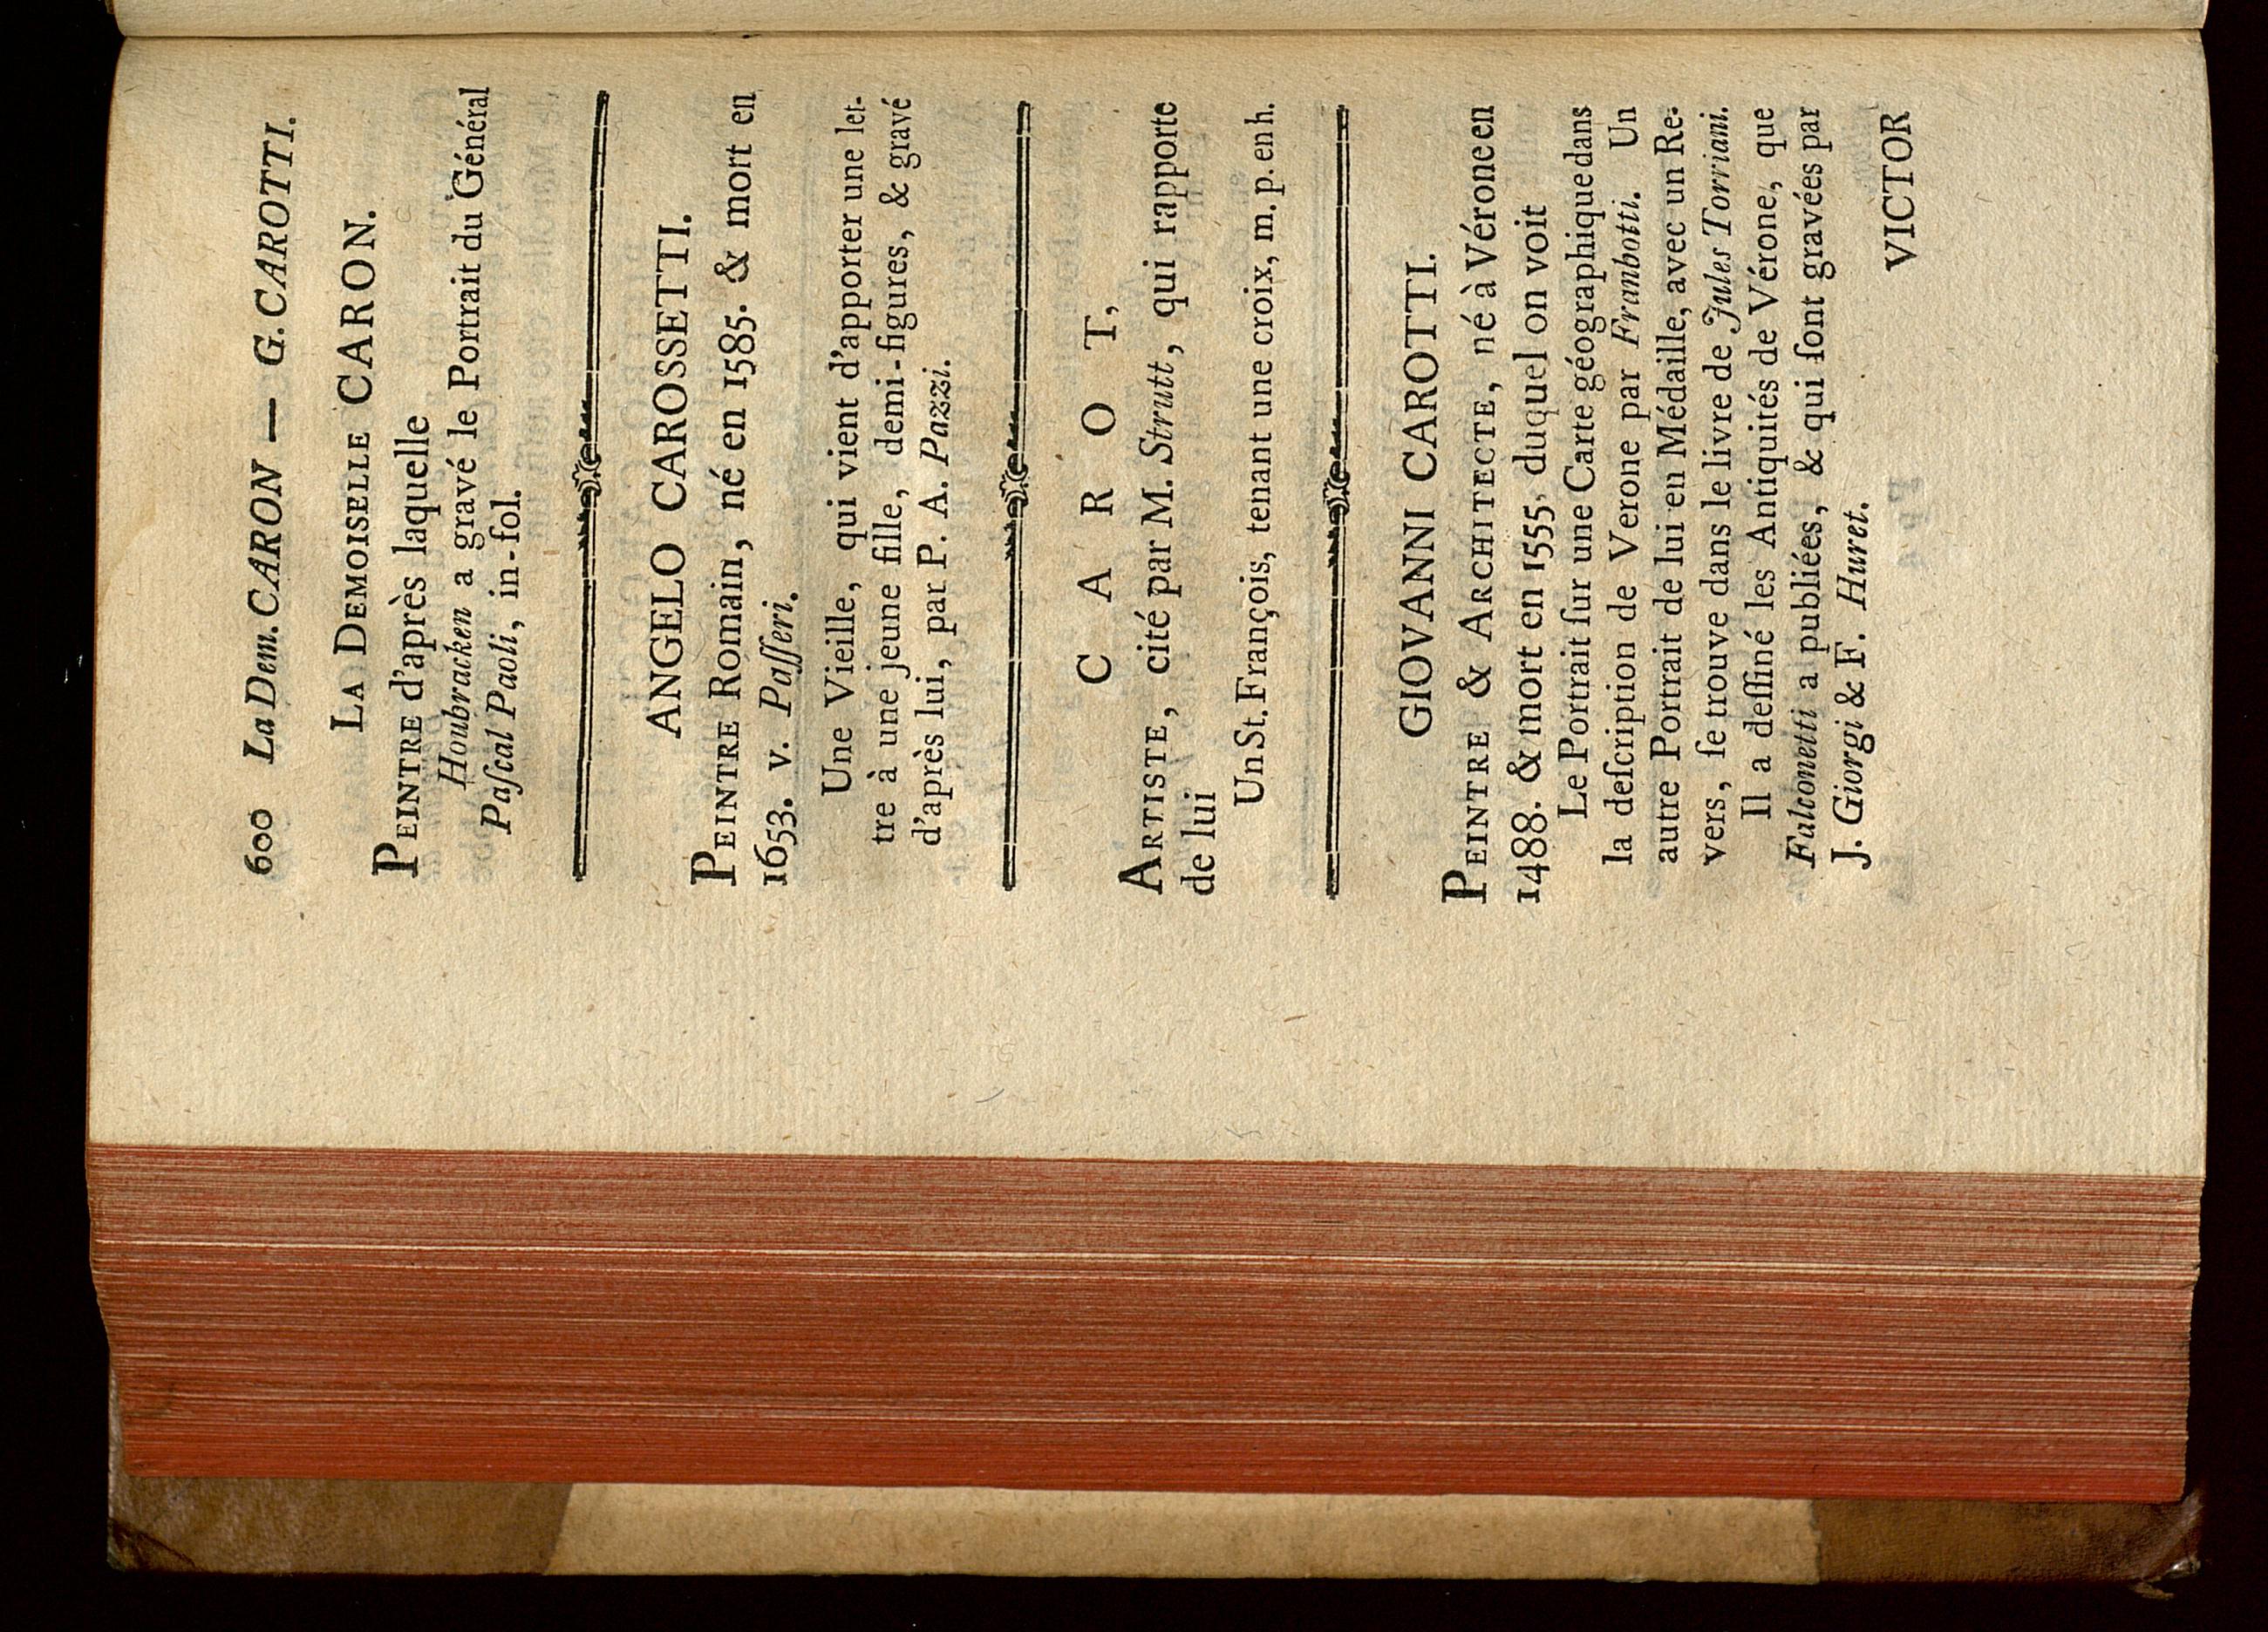 600 La Dem. CARON — G. CAROTTI.
LA DEMOISELLE CARON.
PEINTRE d'après laquelle
Houbracken a gravé le Portrait du Général
Paſcal Paoli, in-fol.
ANGELO CAROSSETTI.
PEINTRE Romain, né en 1585. & mort en
1653. v. Paſſeri.
Une Vieille, qui vient d'apporter une let-
tre à une jeune fille, demi-figures, & gravé
d'après lui, par P. A. Pazzi.
CAROT,
ARTISTE, cité par M. Strutt, qui rapporte
de lui
Un St. François, tenant une croix, m. p. en h.
GIOVANNI CAROTTI.
PEINTRE & ARCHITECTE, né à Vérone en
1488. & mort en 1555. duquel on voit
Le Portrait ſur une Carte géographique dans
la deſcription de Verone par Frambotti. Un
autre Portrait de lui en Médaille, avec un Re-
vers, ſe trouve dans le livre de Jules Torriani.
Il a deſſiné les Antiquités de Vérone, que
Falconetti a publiées, & qui ſont gravées par
J. Giorgi & F. Huret.
VICTOR